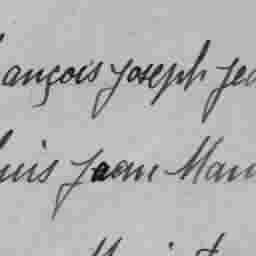 ançois Joseph Jea
uis Jean Mau